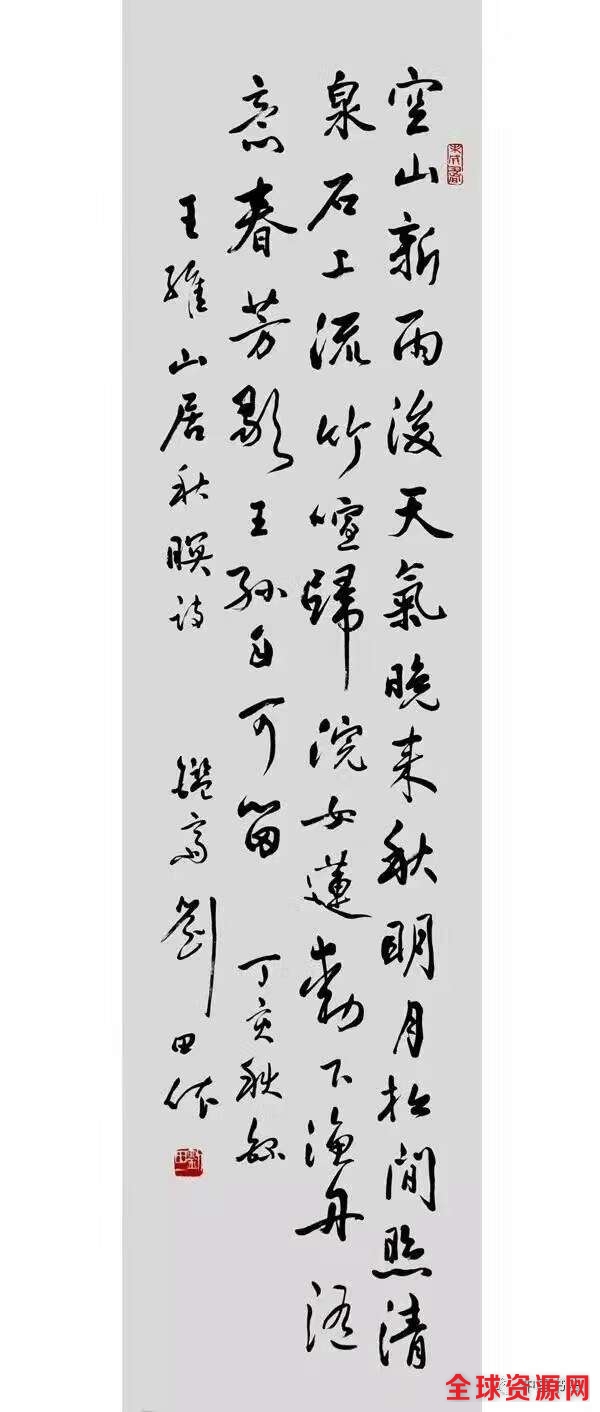 空山新雨後天氣晚来秋明月松間照清
泉石上流竹喧歸浣女蓮動下漁舟随
意春芳歇王孫自可留 丁亥秋錄
王維山居秋暝詩 鑑齋劉田依
全球资源网